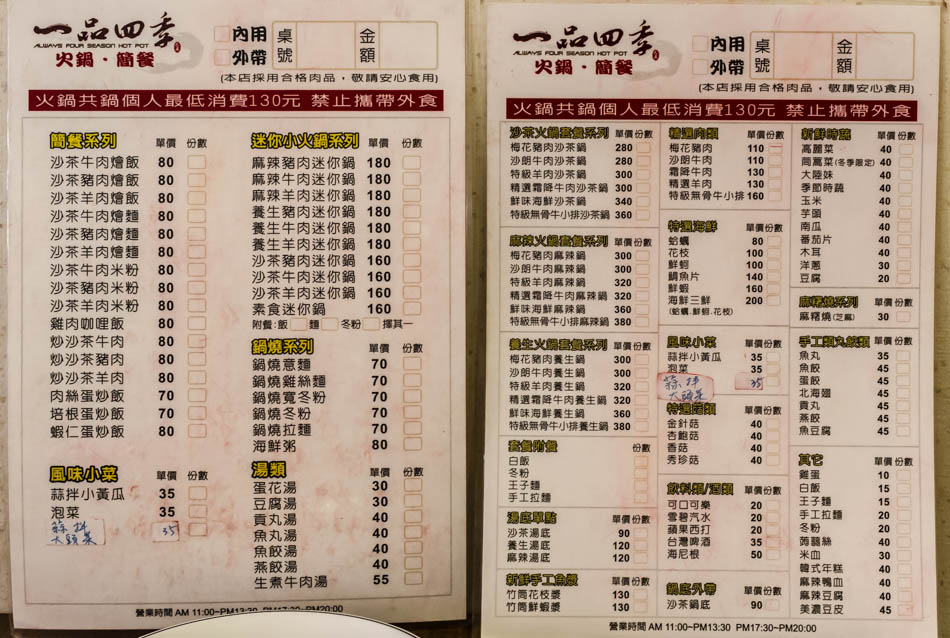 一品四季
ALWAYS FOUR SEASON HOT POT
火鍋・簡餐
內用
外帶
桌號
金額
(本店採用合格肉品，敬請安心食用)
火鍋共鍋個人最低消費130元 禁止攜帶外食
簡餐系列 單價 份數
沙茶牛肉燴飯 80
沙茶豬肉燴飯 80
沙茶羊肉燴飯 80
沙茶牛肉燴麵 80
沙茶豬肉燴麵 80
沙茶羊肉燴麵 80
沙茶牛肉米粉 80
沙茶豬肉米粉 80
沙茶羊肉米粉 80
雞肉咖哩飯 80
炒沙茶牛肉 80
炒沙茶豬肉 80
炒沙茶羊肉 80
肉絲蛋炒飯 70
培根蛋炒飯 70
蝦仁蛋炒飯 80
風味小菜 單價 份數
蒜拌小黃瓜 35
泡菜 35
蒜拌大頭菜 35
迷你小火鍋系列 單價 份數
麻辣豬肉迷你鍋 180
麻辣牛肉迷你鍋 180
麻辣羊肉迷你鍋 180
養生豬肉迷你鍋 180
養生牛肉迷你鍋 180
養生羊肉迷你鍋 180
沙茶豬肉迷你鍋 160
沙茶牛肉迷你鍋 160
沙茶羊肉迷你鍋 160
素食迷你鍋 160
附餐:飯 麵 冬粉 擇其一
鍋燒系列 單價 份數
鍋燒意麵 70
鍋燒雞絲麵 70
鍋燒寬冬粉 70
鍋燒冬粉 70
鍋燒拉麵 70
海鮮粥 80
湯類 單價 份數
蛋花湯 30
豆腐湯 30
貢丸湯 40
魚丸湯 40
魚餃湯 40
燕餃湯 40
生煮牛肉湯 55
營業時間 AM 11:00~PM13:30 PM17:30~PM20:00
一品四季
ALWAYS FOUR SEASON HOT POT
火鍋・簡餐
內用
外帶
桌號
金額
(本店採用合格肉品，敬請安心食用)
火鍋共鍋個人最低消費130元 禁止攜帶外食
沙茶火鍋套餐系列 單價 份數
梅花豬肉沙茶鍋 280
沙朗牛肉沙茶鍋 280
特級羊肉沙茶鍋 300
精選霜降牛肉沙茶鍋 300
鮮味海鮮沙茶鍋 340
特級無骨牛小排沙茶鍋 360
麻辣火鍋套餐系列 單價 份數
梅花豬肉麻辣鍋 300
沙朗牛肉麻辣鍋 300
特級羊肉麻辣鍋 320
精選霜降牛肉麻辣鍋 320
鮮味海鮮麻辣鍋 360
特級無骨牛小排麻辣鍋 380
養生火鍋套餐系列 單價 份數
梅花豬肉養生鍋 300
沙朗牛肉養生鍋 300
特級羊肉養生鍋 320
精選霜降牛肉養生鍋 320
鮮味海鮮養生鍋 360
特級無骨牛小排養生鍋 380
套餐附餐 份數
白飯
冬粉
王子麵
手工拉麵
湯底單點 單價 份數
沙茶湯底 90
養生湯底 120
麻辣湯底 120
新鮮手工魚漿 單價 份數
竹筒花枝漿 130
竹筒鮮蝦漿 130
精選肉類 單價 份數
梅花豬肉 110
沙朗牛肉 110
霜降牛肉 130
精選羊肉 130
特級無骨牛小排 160
特選海鮮 單價 份數
蛤蠣 80
花枝 100
鮮蚵 100
鯛魚片 140
鮮蝦 160
海鮮三鮮 200
(蛤蠣.鮮蚵.花枝)
風味小菜 單價 份數
蒜拌小黃瓜 35
泡菜 35
蒜拌大頭菜 35
特選菇類 單價 份數
金針菇 40
杏鮑菇 40
香菇 40
秀珍菇 40
飲料類/酒類 單價 份數
可口可樂 20
雪碧汽水 20
蘋果西打 20
台灣啤酒 35
海尼根 50
鍋底外帶 單價 份數
沙茶鍋底 90
新鮮時蔬 單價 份數
高麗菜 40
茼萵菜(冬季限定) 40
大陸妹 40
季節時蔬 40
玉米 40
芋頭 40
南瓜 40
番茄片 40
木耳 40
洋蔥 30
豆腐 20
麻糬燒系列 單價 份數
麻糬燒(芝麻) 30
手工類丸餃類 單價 份數
魚丸 35
魚餃 45
蛋餃 45
北海翅 45
貢丸 45
燕餃 45
魚豆腐 45
其它 單價 份數
雞蛋 10
白飯 15
王子麵 15
手工拉麵 20
冬粉 20
蒟蒻絲 40
米血 30
韓式年糕 40
麻辣鴨血 40
麻辣豆腐 40
美濃豆皮 45
營業時間 AM 11:00~PM13:30 PM17:30~PM20:00